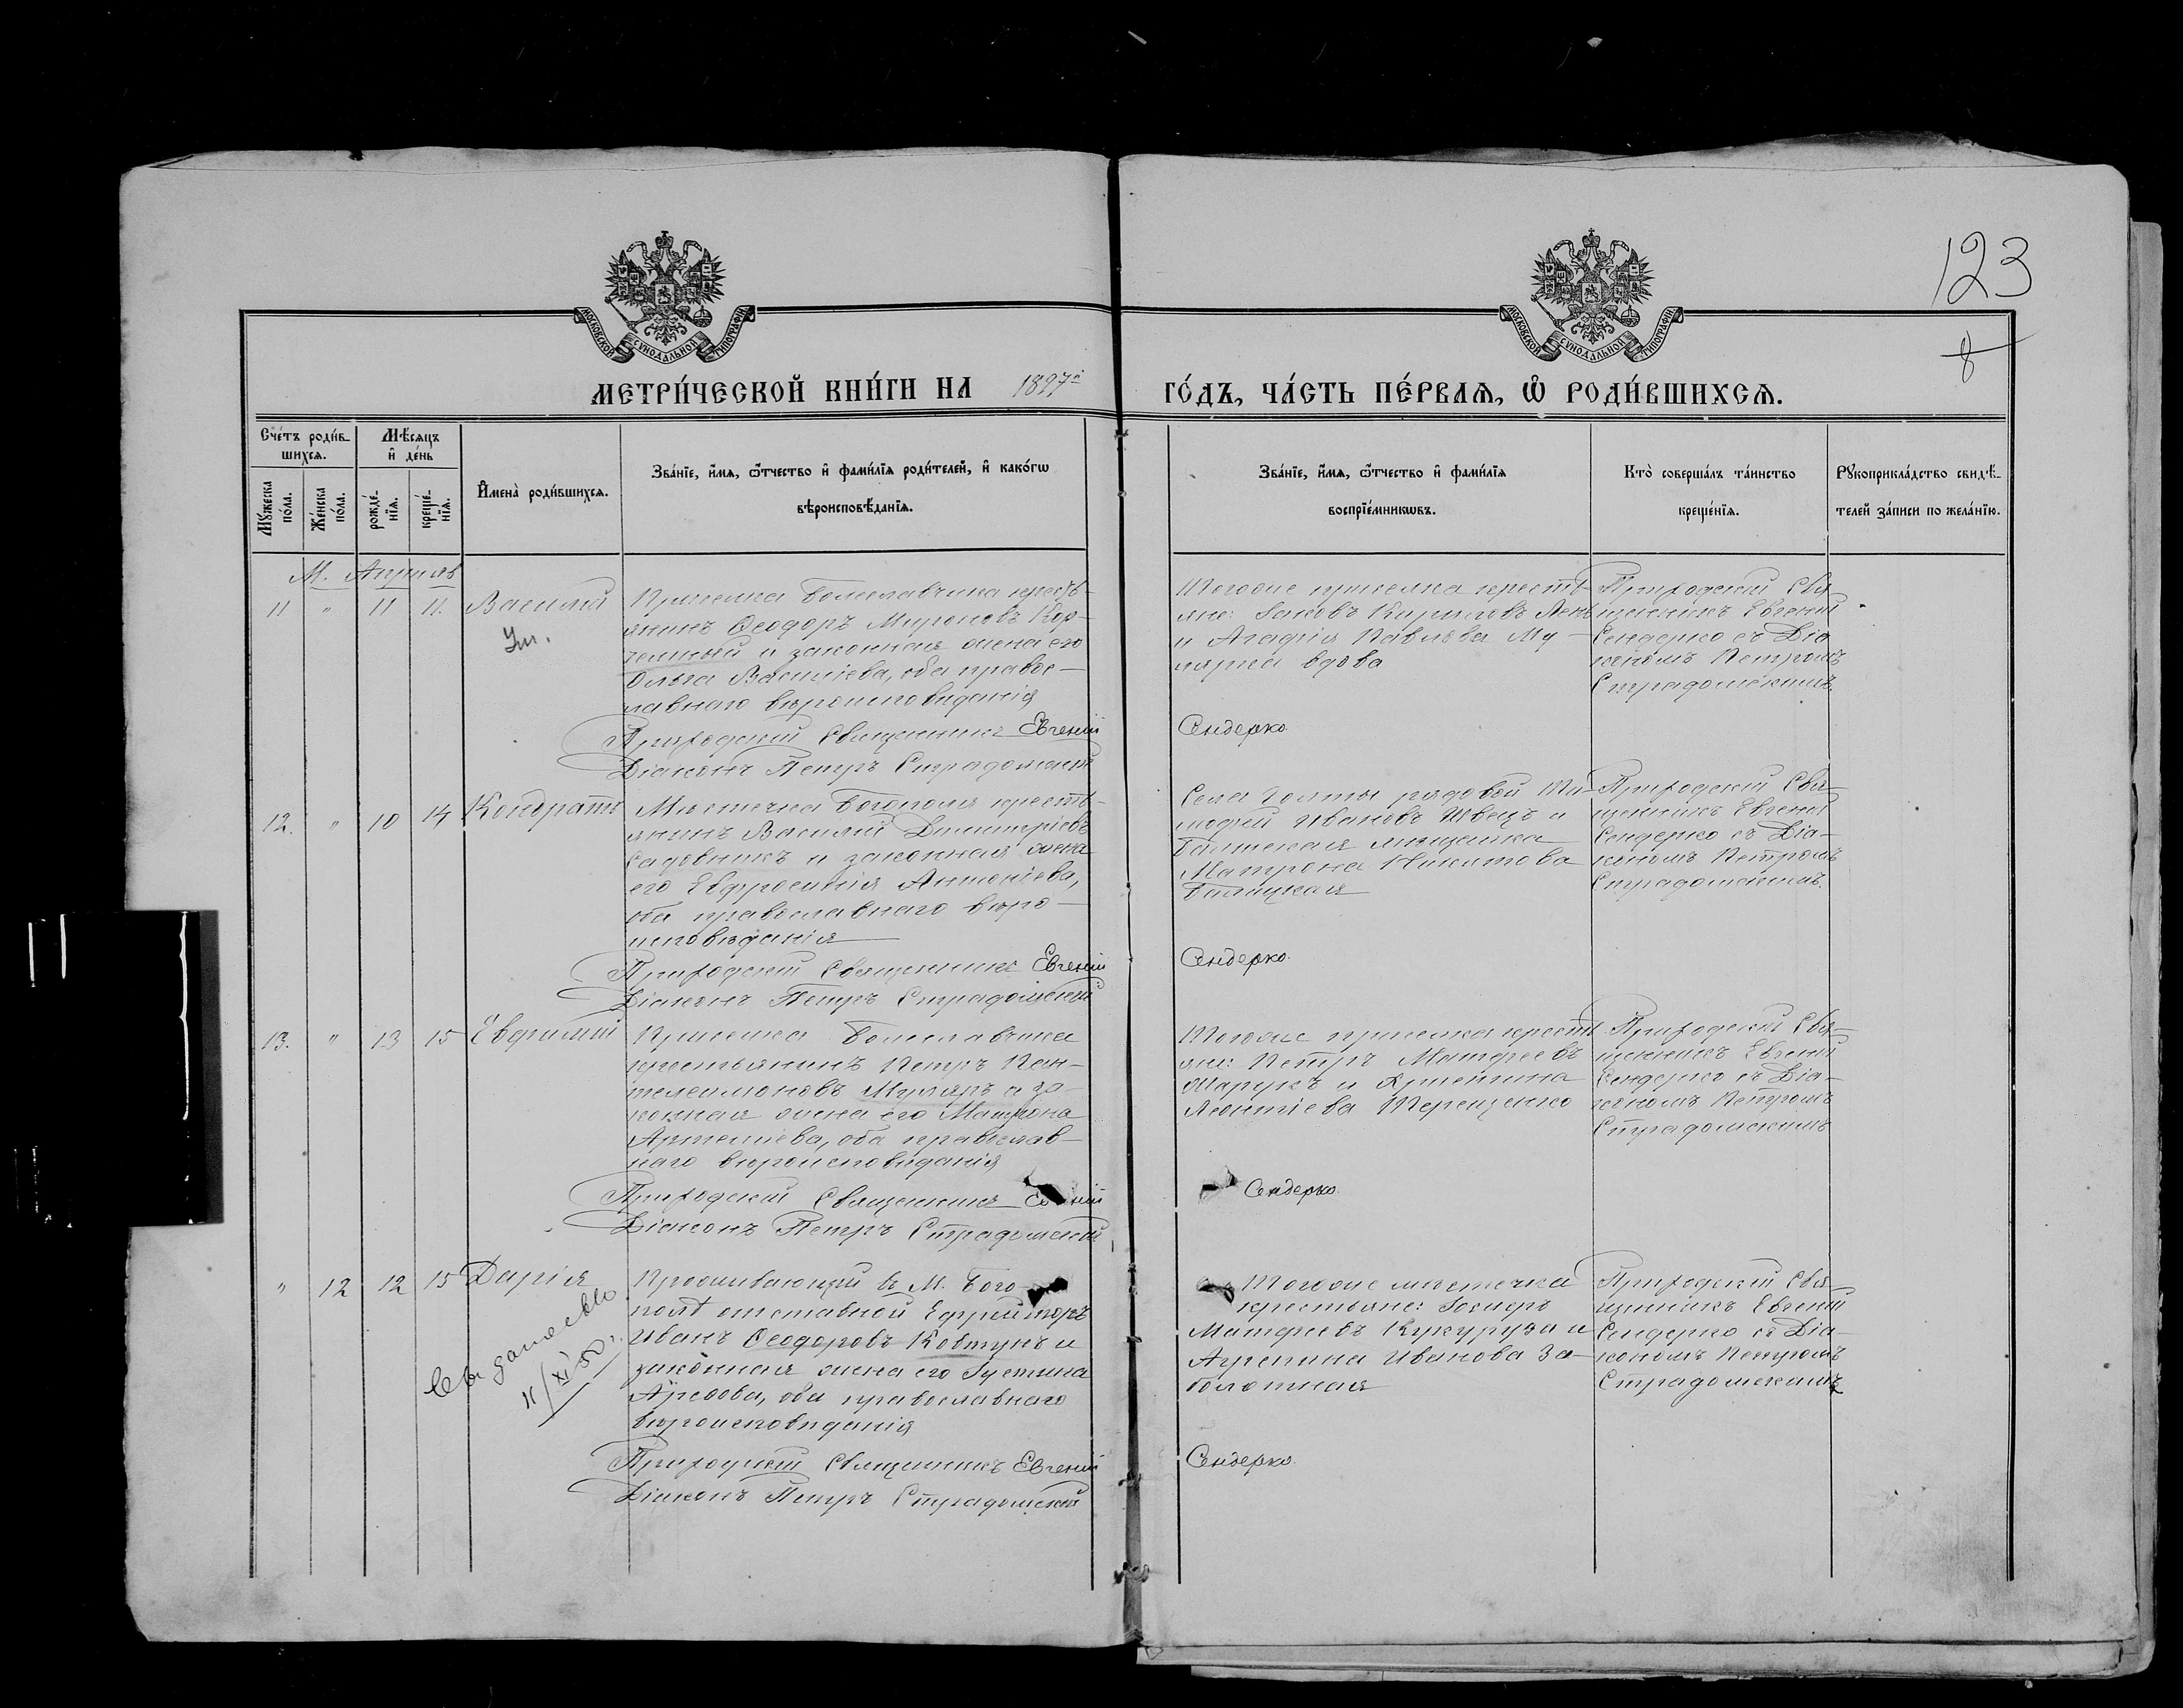 123
8
МОСКОВСКОЙ СѴНОДАЛЬНОЙ ТИПОГРАФІИ
МОСКОВСКОЙ СѴНОДАЛЬНОЙ ТИПОГРАФІИ
МЕТРИ́ЧЕСКОЙ КНИ́ГИ НА 1897й ГО́ДЪ, ЧА́СТЬ ПЕ́РВАѦ, Ѡ҆ РОДИ́ВШИХСѦ.
Сче́тъ роди́в-
шихсѧ.
Мѣ́сѧцъ
и҆ де́нь
Мꙋ́жеска
по́ла.
Же́нска
по́ла.
рожде́-
нїѧ.
креще́-
нїѧ.
И҆мена̀ роди́вшихсѧ.
Зва́нїе, и҆́мѧ, ѻ҆́тчество и҆ фами́лїѧ роди́телей, и҆ како́гѡ
вѣроисповѣ́данїѧ.
Зва́нїе, и҆́мѧ, ѻ҆́тчество и҆ фами́лїѧ
воспрїе́мникѡвъ.
Кто̀ соверша́лъ та́инство
креще́нїѧ.
Рꙋкоприкла́дство свидѣ́-
телей за́писи по жела́нїю.
М. Апрѣль
11 " 11 11. Василій
Ум.
Приселка Болеславчика кресть-
янинъ Ѳеодоръ Мироновъ
и законная жена его
Ольга Василіева, оба правос-
лавнаго вѣроисповѣданія
Приходскій Священникъ Евгеній
Діаконъ Петръ Страдомскій
Тогоже приселка кресть-
яне: Іаковъ Кирилловъ
и Агафія Павлова Му-
лярка вдова
Сендерко.
Приходскій Свя-
щенникъ Евгеній
Сендерко съ Діа-
кономъ Петромъ
Страдомскимъ.
12. " 10 14 Кондратъ
Мѣстечка Богополя кресть-
янинъ Василій Димитріевъ
Садовникъ и законная жена
его Евфросинія Антоніева,
оба православнаго вѣро-
исповѣданія
Приходскій Священникъ Евгеній
Діаконъ Петръ Страдомскій
Села Голты рядовой Ти-
мофей Ивановъ Швецъ и
Балтская мѣщанка
Матрона Никитова
Балицкая
Сендерко.
Приходскій Свя-
щенникъ Евгеній
Сендерко съ Діа-
кономъ Петромъ
Страдомскимъ.
13. " 13 15 Евфимій
Приселка Болеславчика
крестьянинъ Петръ Пан-
телеимоновъ Муляръ и за-
конная жена его Матрона
Артеміева, оба православ-
наго вѣроисповѣданія
Приходскій Священникъ
Діаконъ Петръ Страдомскій
Тогоже приселка кресть-
яне: Петръ Матфеевъ
Марукъ и Христина
Леонтіева Терещенко
Сендерко.
Приходскій Свя-
щенникъ Евгеній
Сендерко съ Діа-
кономъ Петромъ
Страдомскимъ
" 12 12 15 Дарія
11/XI 50 г.
Проживающій въ М. Бого-
полѣ отставной Ефрейторъ
Иванъ Ѳеодоровъ Ковтунъ и
законная жена его Іустина
оба православнаго
вѣроисповѣданія
Приходскій Священникъ Евгеній
Діаконъ Петръ Страдомскій
Тогоже мѣстечка
крестьяне:
Матфеевъ Кукуруза и
Агрепина Иванова За-
болотная
Сендерко.
Приходскій Свя-
щенникъ Евгеній
Сендерко съ Діа-
кономъ Петромъ
Страдомскимъ